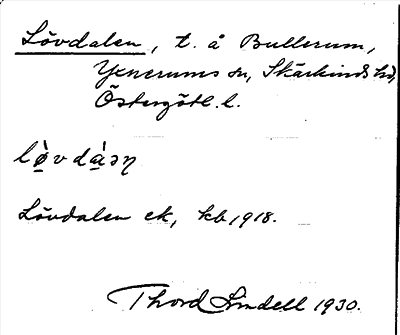 Lövdalen, t. å Bullerum,
Yxnerums sn, Skärkinds hd,
Östergötl. l.
lø̀vdàən
Lövdalen ek, kb 1918.
Thord Lindell 1930.